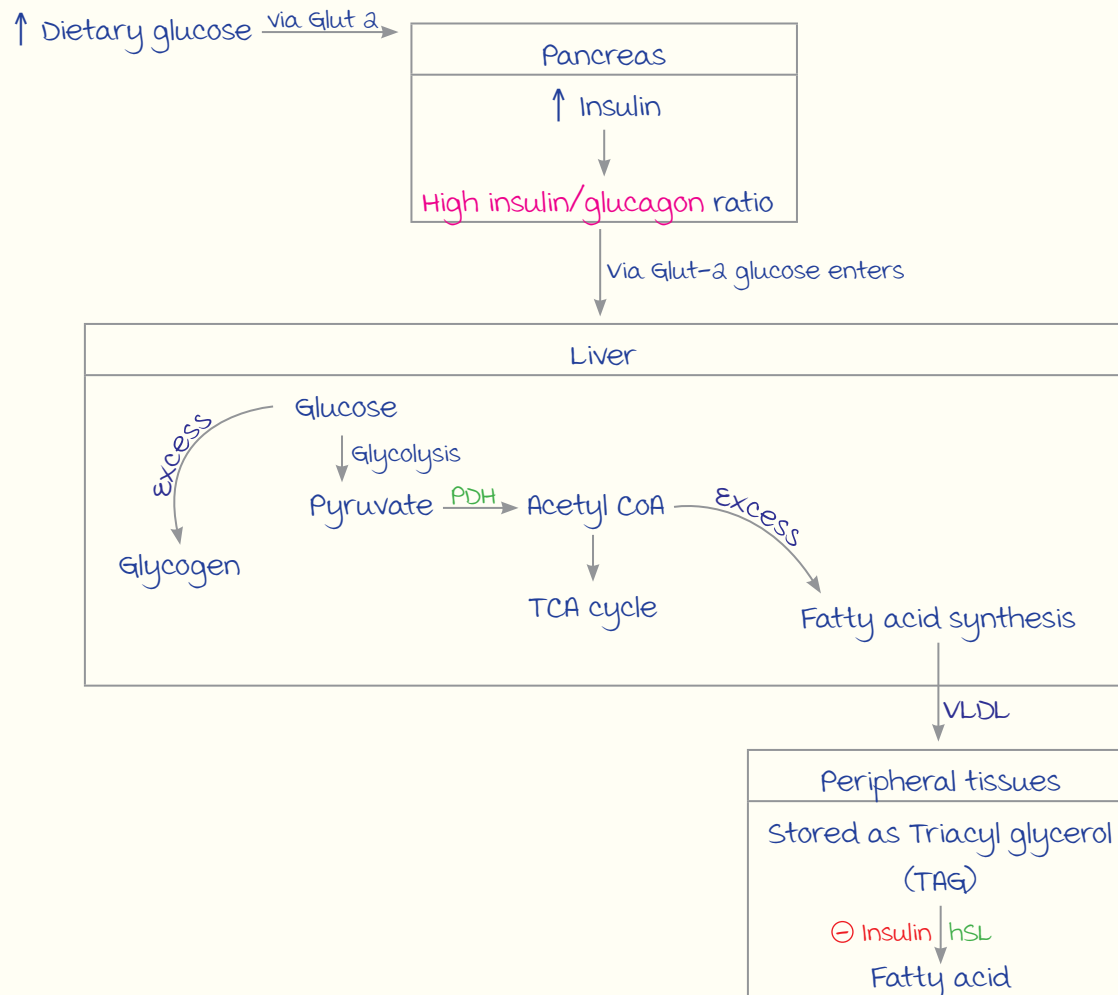 ↑ Dietary glucose via Glut 2
Pancreas
↑ Insulin
High insulin/glucagon ratio
Via Glut-2 glucose enters
Liver
Glucose
Excess
Glycolysis
Pyruvate PDH Acetyl CoA Excess
Glycogen
TCA cycle
Fatty acid synthesis
VLDL
Peripheral tissues
Stored as Triacyl glycerol
(TAG)
⊖ Insulin hSL
Fatty acid